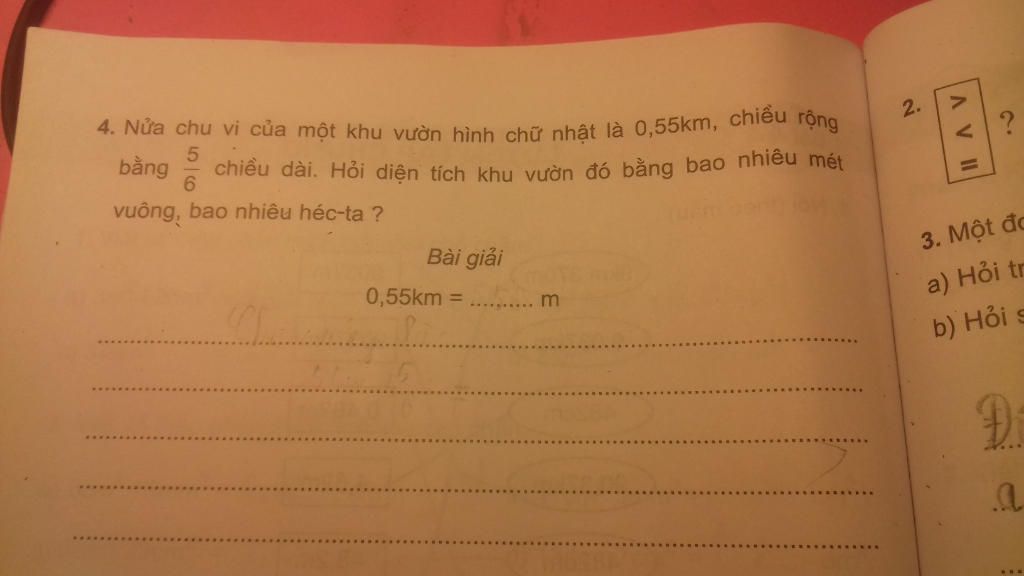 4. Nửa chu vi của một khu vườn hình chữ nhật là 0,55km, chiều rộng
bằng 5/6 chiều dài. Hỏi diện tích khu vườn đó bằng bao nhiêu mét
vuông, bao nhiêu héc-ta ?
Bài giải
0,55km = .......... m
2. > < = ?
3. Một
a) Hỏi
b) Hỏi